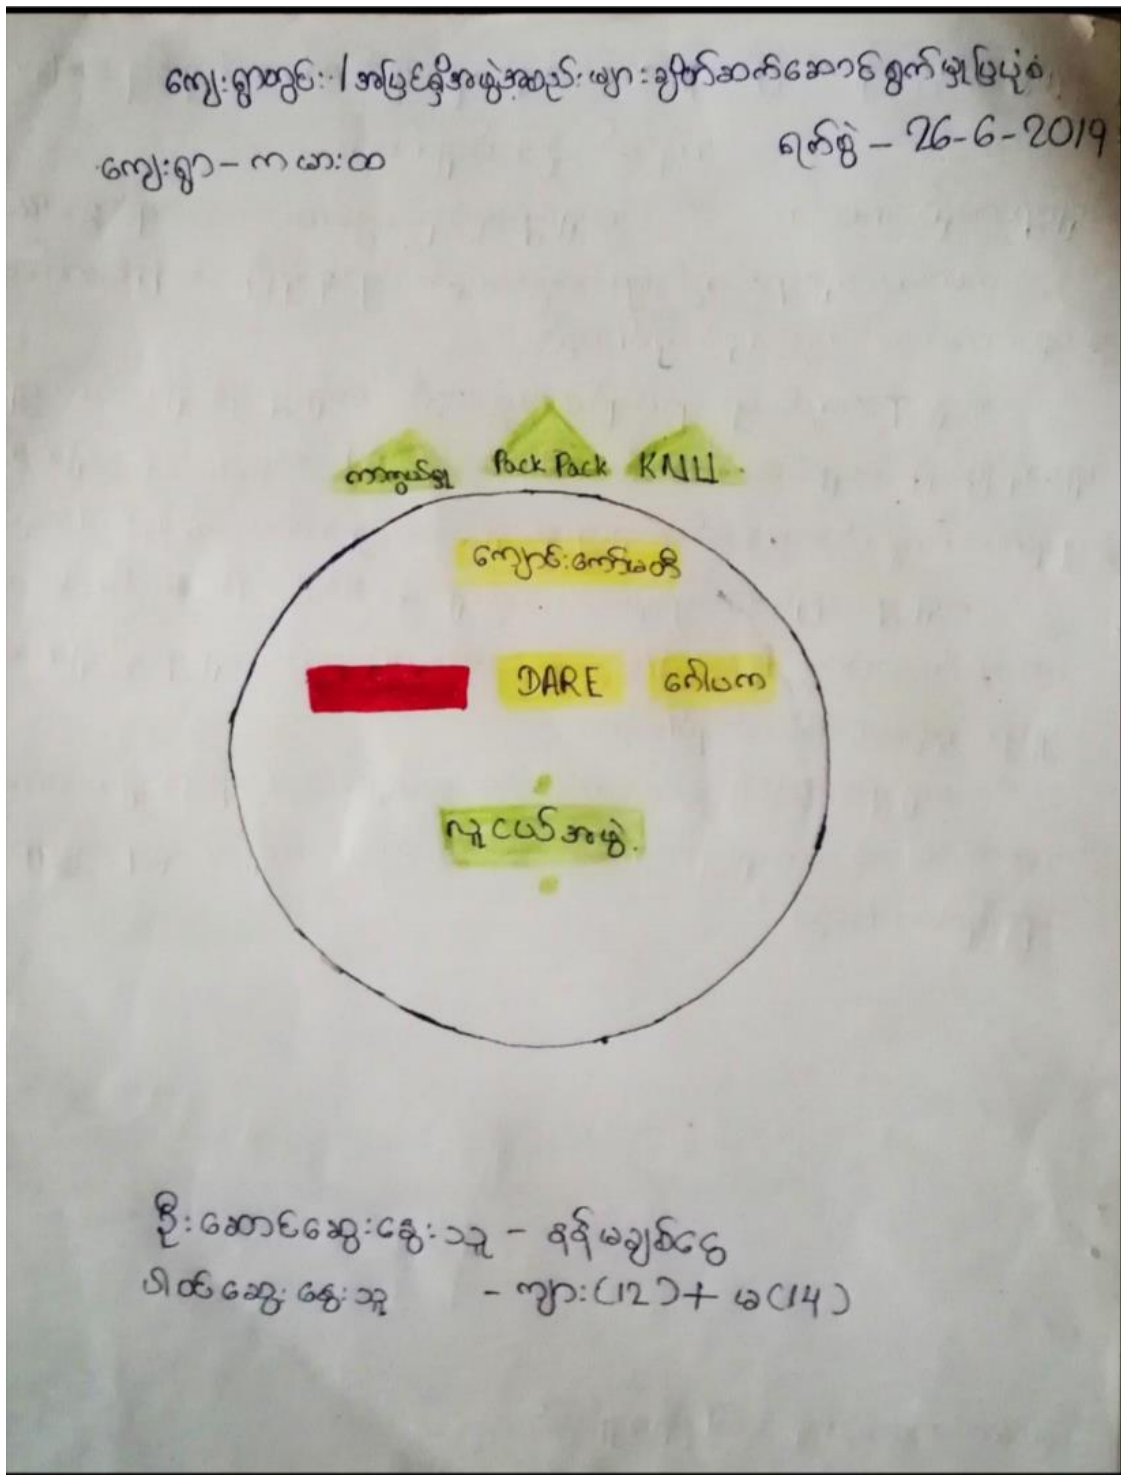 ကျေးရွာတွင်း / အပြင်ရှိအဖွဲ့အစည်းများချိတ်ဆက်ဆောင်ရွက်မှုပြပုံစံ
ရက်စွဲ – 26-6-2019
ကျေးရွာ – ကမားထ
ကာကွယ်မှု Pack Pack KNU
ကျောင်းကော်မတီ
DARE ဂေါပက
လူငယ်အဖွဲ့
ဦးဆောင်ဆွေးနွေးသူ – နန်မချစ်ငွေ
ပါဝင်ဆွေးနွေးသူ – ကျား(12)+ မ(14)